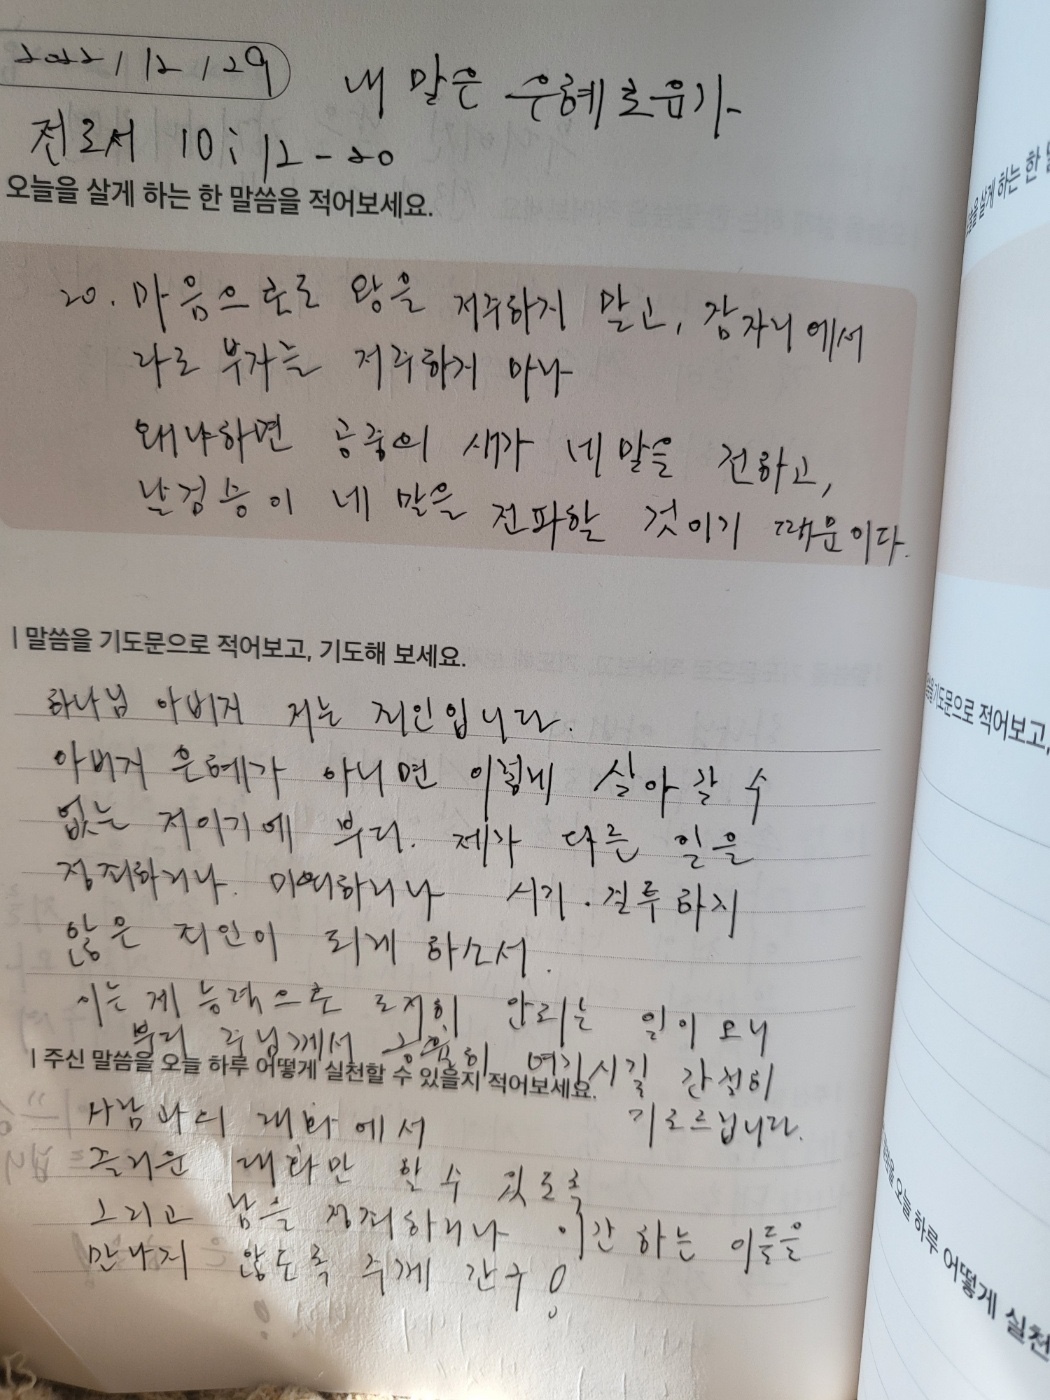 2022/12/29
내 말은 은혜로운가-
전도서 10:12-20
오늘을 살게 하는 한 말씀을 적어보세요.
20. 마음으로도 왕을 저주하지 말고, 잠자리에서
라도 부자를 저주하지 마라
왜냐하면 공중의 새가 네 말을 전하고,
날짐승이 네 말을 전파할 것이기 때문이다.
| 말씀을 기도문으로 적어보고, 기도해 보세요.
하나님 아버지 저는 죄인입니다.
아버지 은혜가 아니면 이렇게 살아갈 수
없는 저이기에 부디. 제가 다른 일을
정죄하거나. 미워하거나 시기.질투하지
않은 죄인이 되게 하소서.
이는 제 능력으로 도저히 안되는 일이오니
부디 주님께서 긍휼히 여기시길 간절히
기도드립니다.
| 주신 말씀을 오늘 하루 어떻게 실천할 수 있을지 적어보세요.
사람과의 대화에서
즐거운 대화만 할 수 있도록
그리고 남을 정죄하거나 이간하는 이들을
만나지 않도록 주께 간구!
말씀을 기도문으로 적어보고,
오늘 하루 어떻게 실천